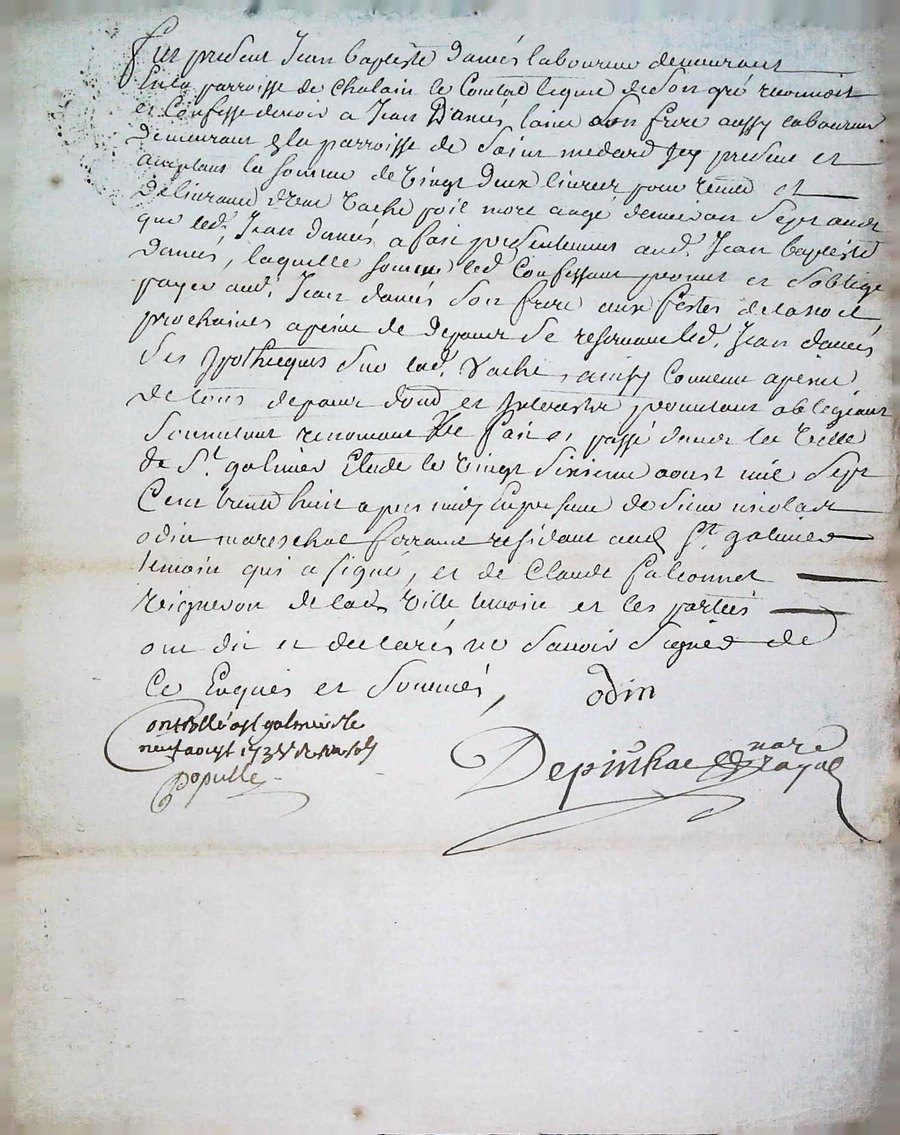 Fut present Jean baptiste damés laboureur demeurant
en la parroisse de Chalain le Comtal lequel de son gré reconnoit
et Confesse devoir a Jean Damés laine son frere aussy laboureur
demeurant en la parroisse de Saint medard Icy present et
acceptant la somme de Vingt deux livres pour vente et
delivrance d'une Vache poil more aagé denviron Sept ans
que led. Jean damés a fait presentement aud. Jean baptiste
damés, laquelle somme led Confessant promet et s'oblige
payer aud. Jean damés Son frere aux festes de la noel
prochaines a peine de depans Se reservant led. Jean damés
Ses Ipotheques sur lad. Vache, ainsy Convenu a peine
de tous depans et Interests promettant obligeant
Soumettant renonceant fait et passé dans la Ville
de St. galmier Etude le Vingt Sixieme aoust mil Sept
Cent trente huit apres midy En presence de Sieur nicolas
odin mareschal ferrant residant aud St. galmier
temoin qui a signé, et de Claude falconnet
Vigneron de lad Ville temoin et les parties
ont dit et declarés ne Savoir Signer de
Ce Enquis et Sommés,
odin
Controllé a St galmier le
aoust 1738
populle
Depinhac nore
royal